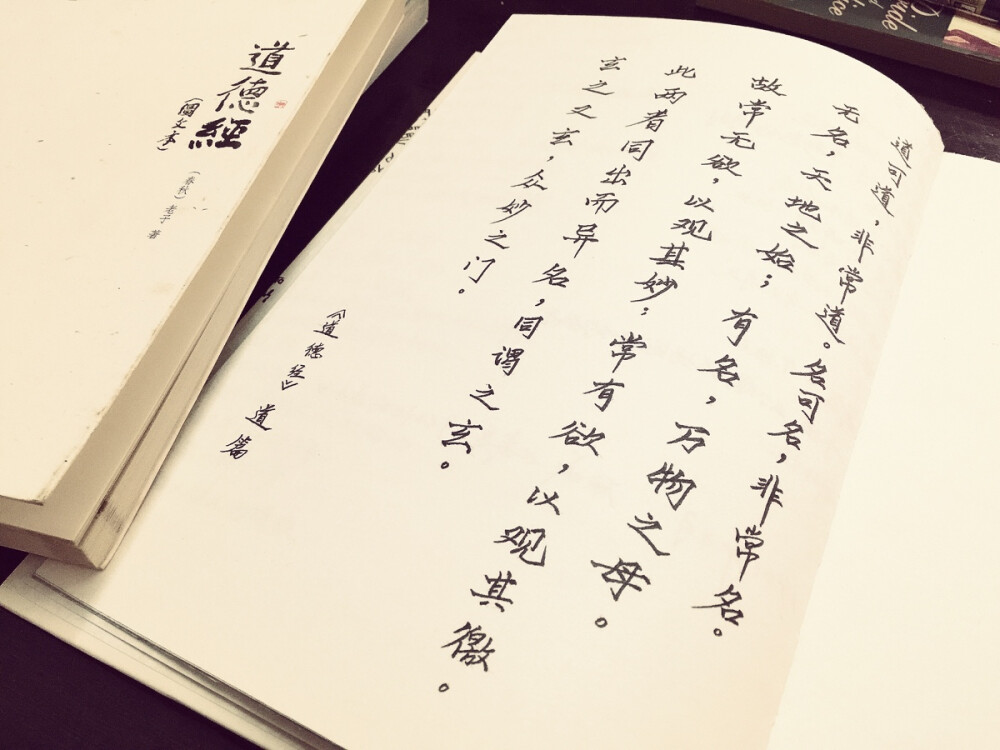 道可道，非常道。名可名，非常名。
无名，天地之始；有名，万物之母。
故常无欲，以观其妙；常有欲，以观其徼。
此两者同出而异名，同谓之玄。
玄之又玄，众妙之门。
《道德经》道篇
道德經
（圖文本）
（春秋）老子 著